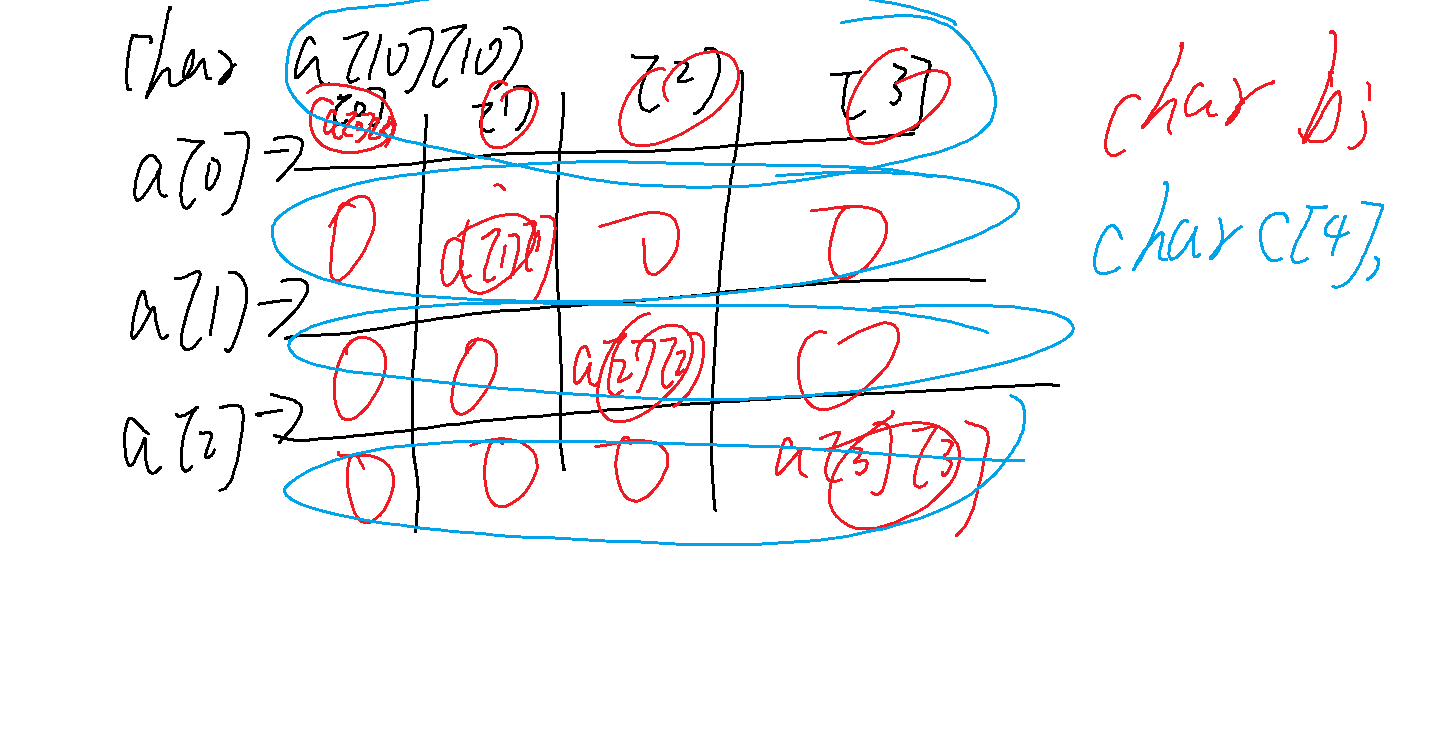 char a[10][10]
[0] [1] [2] [3]
a[0]→
a[1][1]
a[1]→
a[2][2]
a[2]→
a[3][3]
char b;
char c[4];